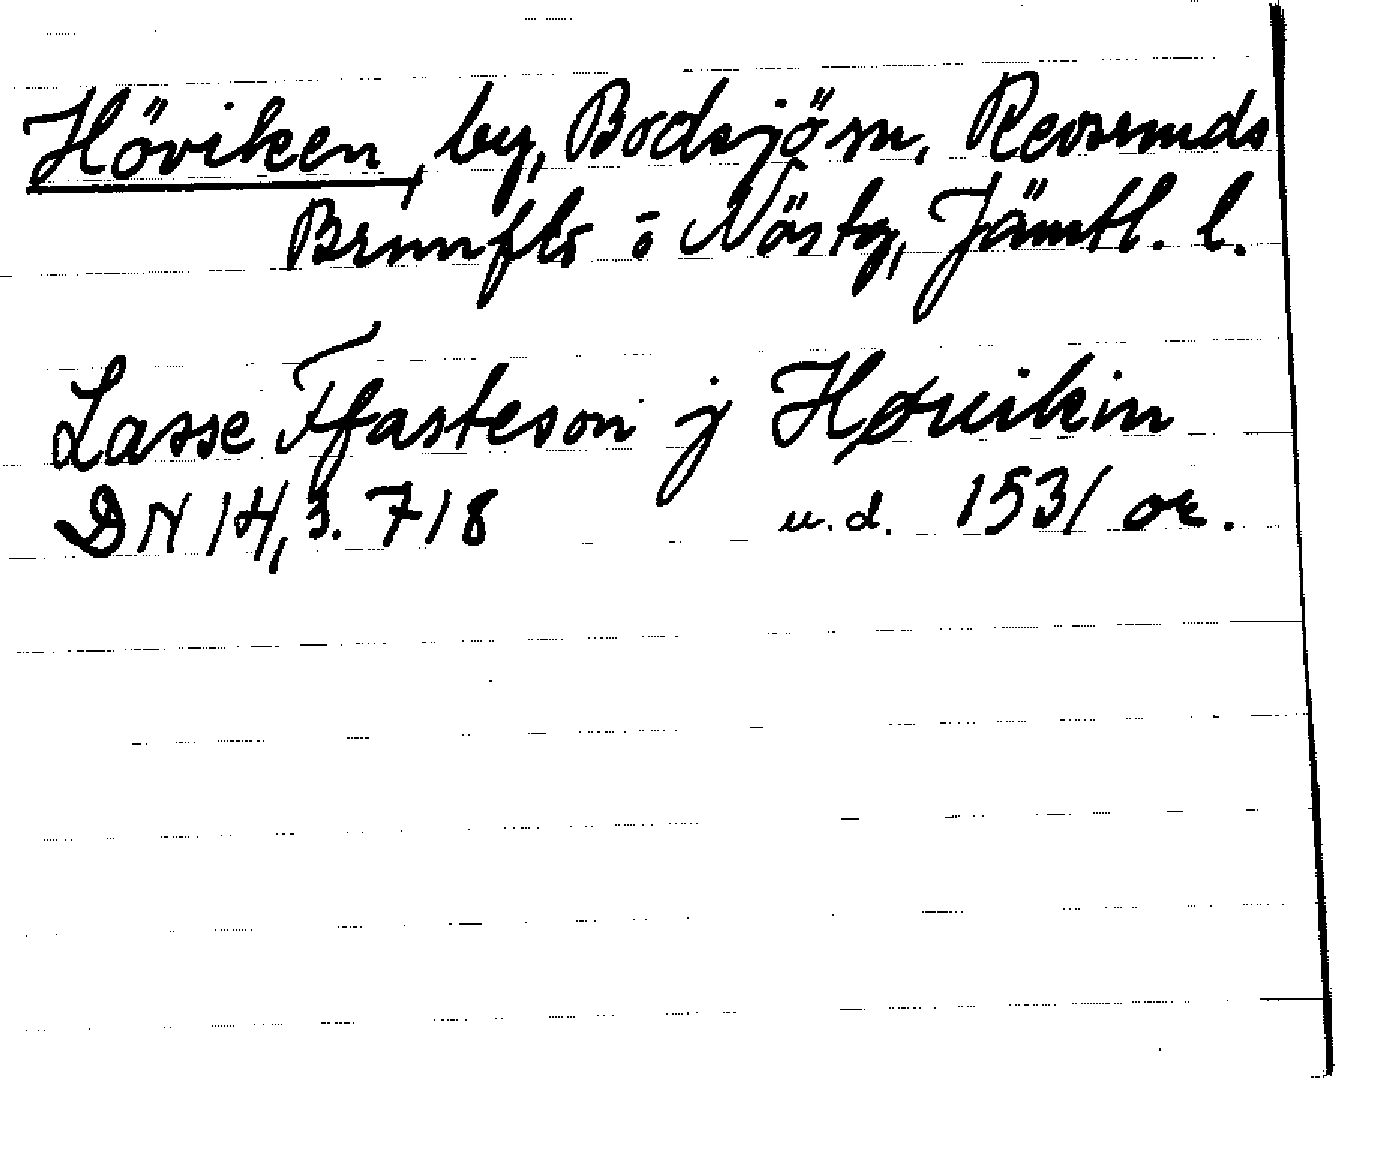 Höviken, by, Bodsjö sn, Revsunds
Brunflo o Näs tg, Jämtl. l.
Lasse Ffasteson j Høuikin
DN 14, s. 718 u.d. 1531 or.